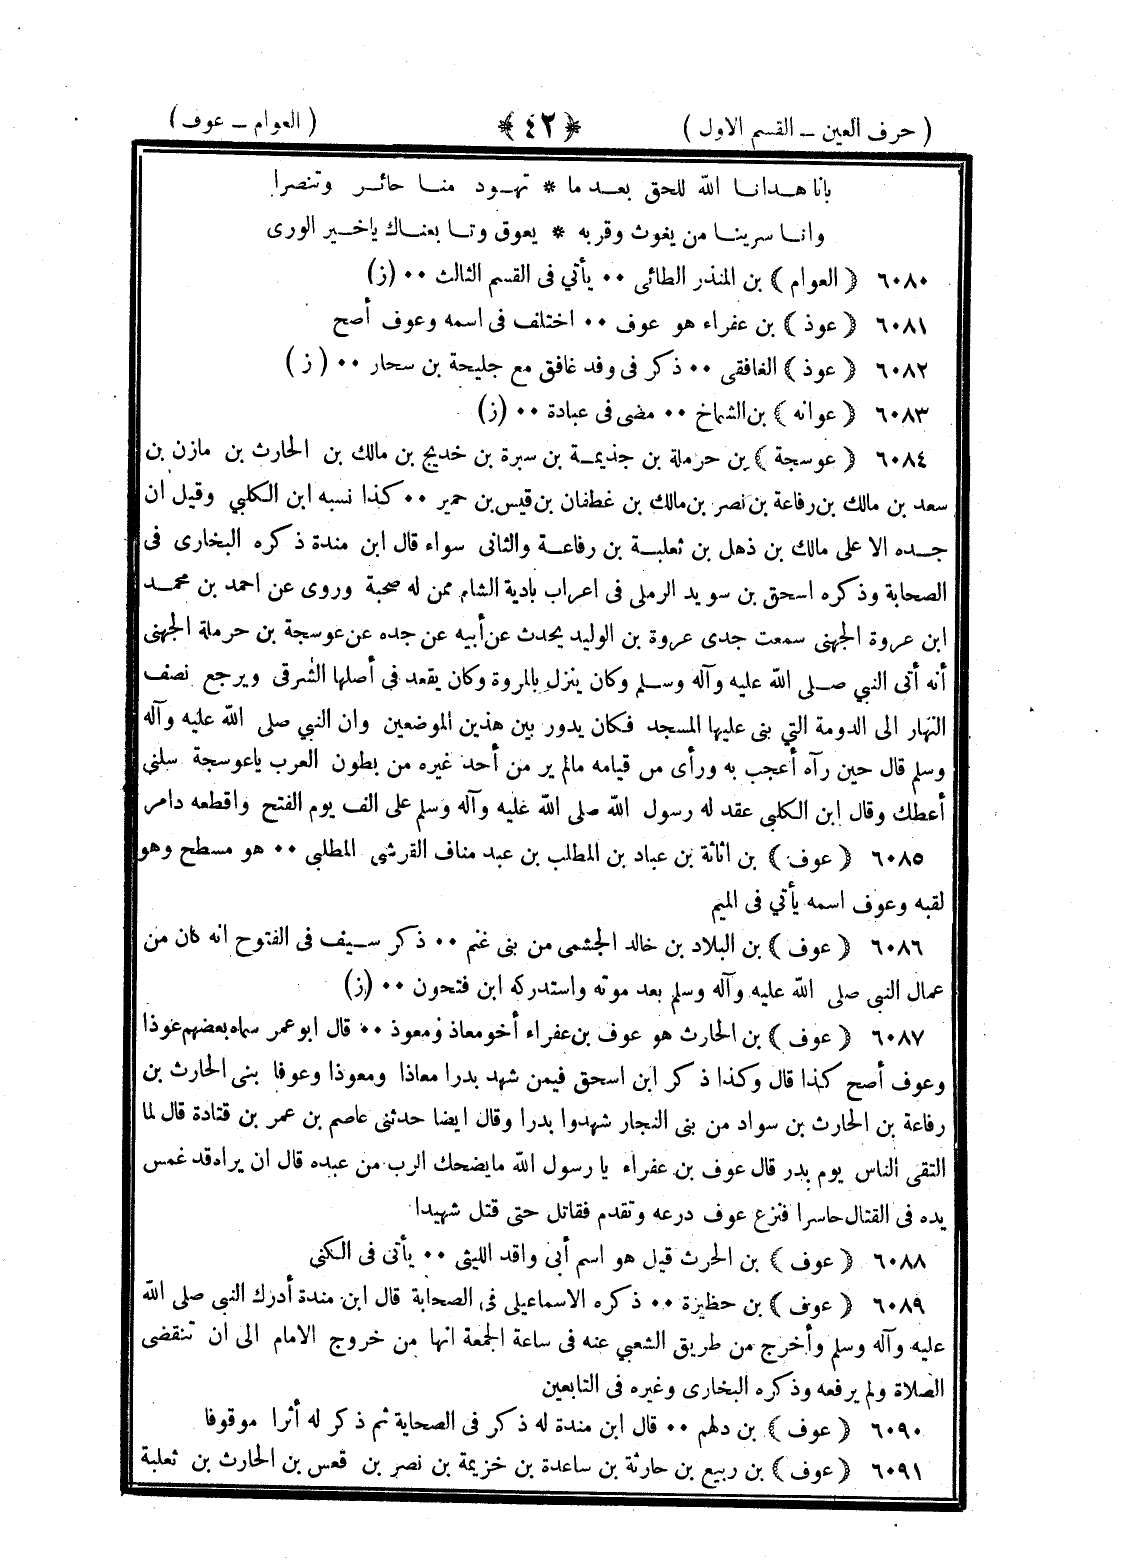 ( حرف العين ــ القسم الاول ) ﴿ ٤٢ ﴾ ( العوام ــ عوف )
بانا هدانا الله للحق بعد ما * تهود منا حائر وتنصرا
وانا سرينا من يغوث وقربه * يعوق وتا بعناك ياخير الورى
٦٠٨٠ ﴿ العوام ﴾ بن المنذر الطائى ٠٠ يأتي فى القسم الثالث ٠٠ (ز)
٦٠٨١ ﴿ عوذ ﴾ بن عفراء هو عوف ٠٠ اختلف فى اسمه وعوف أصح
٦٠٨٢ ﴿ عوذ ﴾ الغافقى ٠٠ ذكر فى وفد غافق مع جليحة بن سحار ٠٠ ( ز )
٦٠٨٣ ﴿ عوانه ﴾ بن الشماخ ٠٠ مضى فى عبادة ٠٠ (ز)
٦٠٨٤ ﴿ عوسجة ﴾ بن حرملة بن جذيمة بن سبرة بن خديج بن مالك بن الحارث بن مازن بن
سعد بن مالك بن رفاعة بن نصر بن مالك بن غطفان بن قيس بن حمير ٠٠ كذا نسبه ابن الكلبي وقيل ان
جده الا على مالك بن ذهل بن ثعلبة بن رفاعة والثانى سواء قال ابن مندة ذكره البخارى فى
الصحابة وذكره اسحق بن سويد الرملى فى اعراب بادية الشام ممن له صحبة وروى عن احمد بن محمد
ابن عروة الجهنى سمعت جدى عروة بن الوليد يحدث عن أبيه عن جده عن عوسجة بن حرملة الجهنى
أنه أتى النبي صلى الله عليه وآله وسلم وكان ينزل بالمروة وكان يقعد فى أصلها الشرقى ويرجع نصف
النهار الى الدومة التي بنى عليها المسجد فكان يدور بين هذين الموضعين وان النبي صلى الله عليه وآله
وسلم قال حين رآه أعجب به ورأى من قيامه مالم ير من أحد غيره من بطون العرب ياعوسجة سلنى
أعطك وقال ابن الكلبى عقد له رسول الله صلى الله عليه وآله وسلم على الف يوم الفتح واقطعه دامر
٦٠٨٥ ﴿ عوف ﴾ بن اثاثة بن عباد بن المطلب بن عبد مناف القرشى المطلبى ٠٠ هو مسطح وهو
لقبه وعوف اسمه يأتي فى الميم
٦٠٨٦ ﴿ عوف ﴾ بن البلاد بن خالد الجشمى من بنى غنم ٠٠ ذكر سيف فى الفتوح انه كان من
عمال النبي صلى الله عليه وآله وسلم بعد موته واستدركه ابن فتحون ٠٠ (ز)
٦٠٨٧ ﴿ عوف ﴾ بن الحارث هو عوف بن عفراء أخو معاذ ومعوذ ٠٠ قال ابو عمر سماه بعضهم عوذا
وعوف أصح كذا قال وكذا ذكر ابن اسحق فيمن شهد بدرا معاذا ومعوذا وعوفا بنى الحارث بن
رفاعة بن الحارث بن سواد من بنى النجار شهدوا بدرا وقال ايضا حدثنى عاصم بن عمر بن قتادة قال لما
التقى الناس يوم بدر قال عوف بن عفراء يا رسول الله مايضحك الرب من عبده قال ان يراه قد غمس
يده فى القتال حاسرا فنزع عوف درعه وتقدم فقاتل حتى قتل شهيدا
٦٠٨٨ ﴿ عوف ﴾ بن الحرث قيل هو اسم أبى واقد الليثى ٠٠ يأتى فى الكنى
٦٠٨٩ ﴿ عوف ﴾ بن حظيرة ٠٠ ذكره الاسماعيلى فى الصحابة قال ابن مندة أدرك النبي صلى الله
عليه وآله وسلم وأخرج من طريق الشعبي عنه فى ساعة الجمعة انها من خروج الامام الى ان تنقضى
الصلاة ولم يرفعه وذكره البخارى وغيره فى التابعين
٦٠٩٠ ﴿ عوف ﴾ بن دلهم ٠٠ قال ابن مندة له ذكر فى الصحابة ثم ذكر له أثرا موقوفا
٦٠٩١ ﴿ عوف ﴾ بن ربيع بن حارثة بن ساعدة بن خزيمة بن نصر بن قعس بن الحارث بن ثعلبة